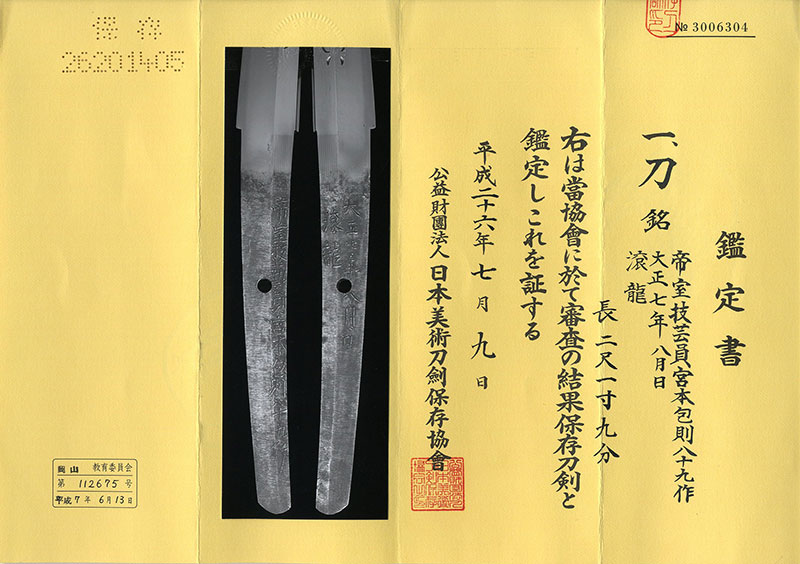 № 3006304
鑑定書
一、刀 銘 帝室技芸員宮本包則八十九作
大正七年 八月日
滾龍
長 二尺一寸九分
右は當協會に於て審査の結果保存刀剣と
鑑定しこれを証する
平成二十六年七月九日
公益財團法人 日本美術刀劍保存協會
保存
26201405
岡山 教育委員会
第 112675 号
平成7年 6月13日